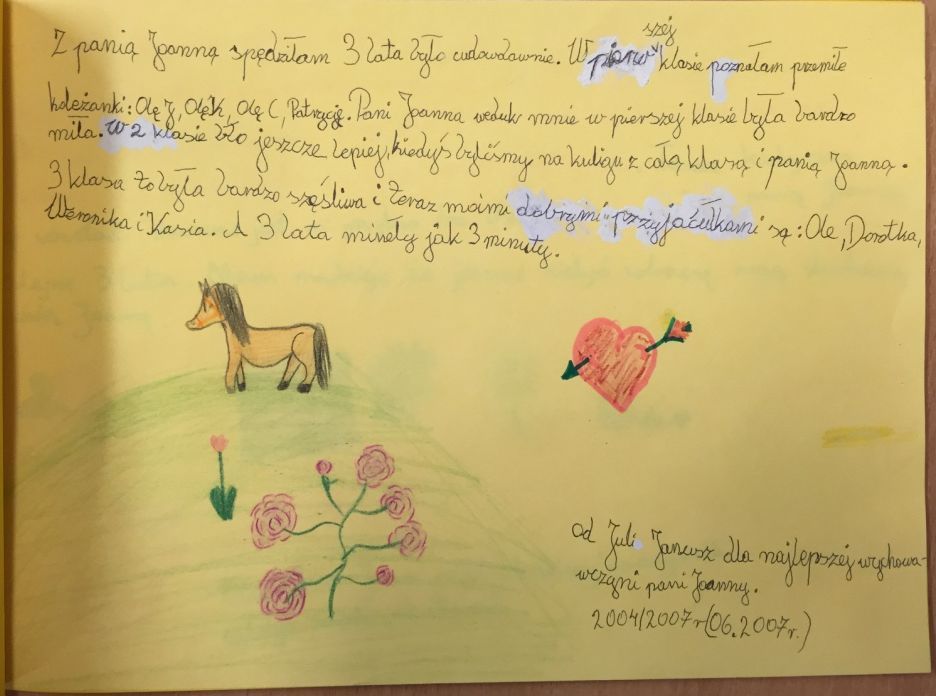 Z panią Joanną spędziłam 3 lata było cudowdawnie. W pierwszej klasie poznałam przemiłe
koleżanki: Olę J, Olę K, Olę C, Patrycję. Pani Joanna weduk mnie w pierszej klasie była bardzo
miła. W 2 klasie bło jeszcze lepiej, kiedyś byliśmy na kuligu z całą klasą i panią Joanną.
3 klasa to była bardzo szęśliwa i teraz moimi dobrymi przyjaćułkami są: Ole, Dorotka,
Weronika i Kasia. A 3 lata mineły jak 3 minuty.
od Juli Janusz dla najlepszej wychowa-
wczyni pani Joanny.
2004/2007r (06.2007r.)